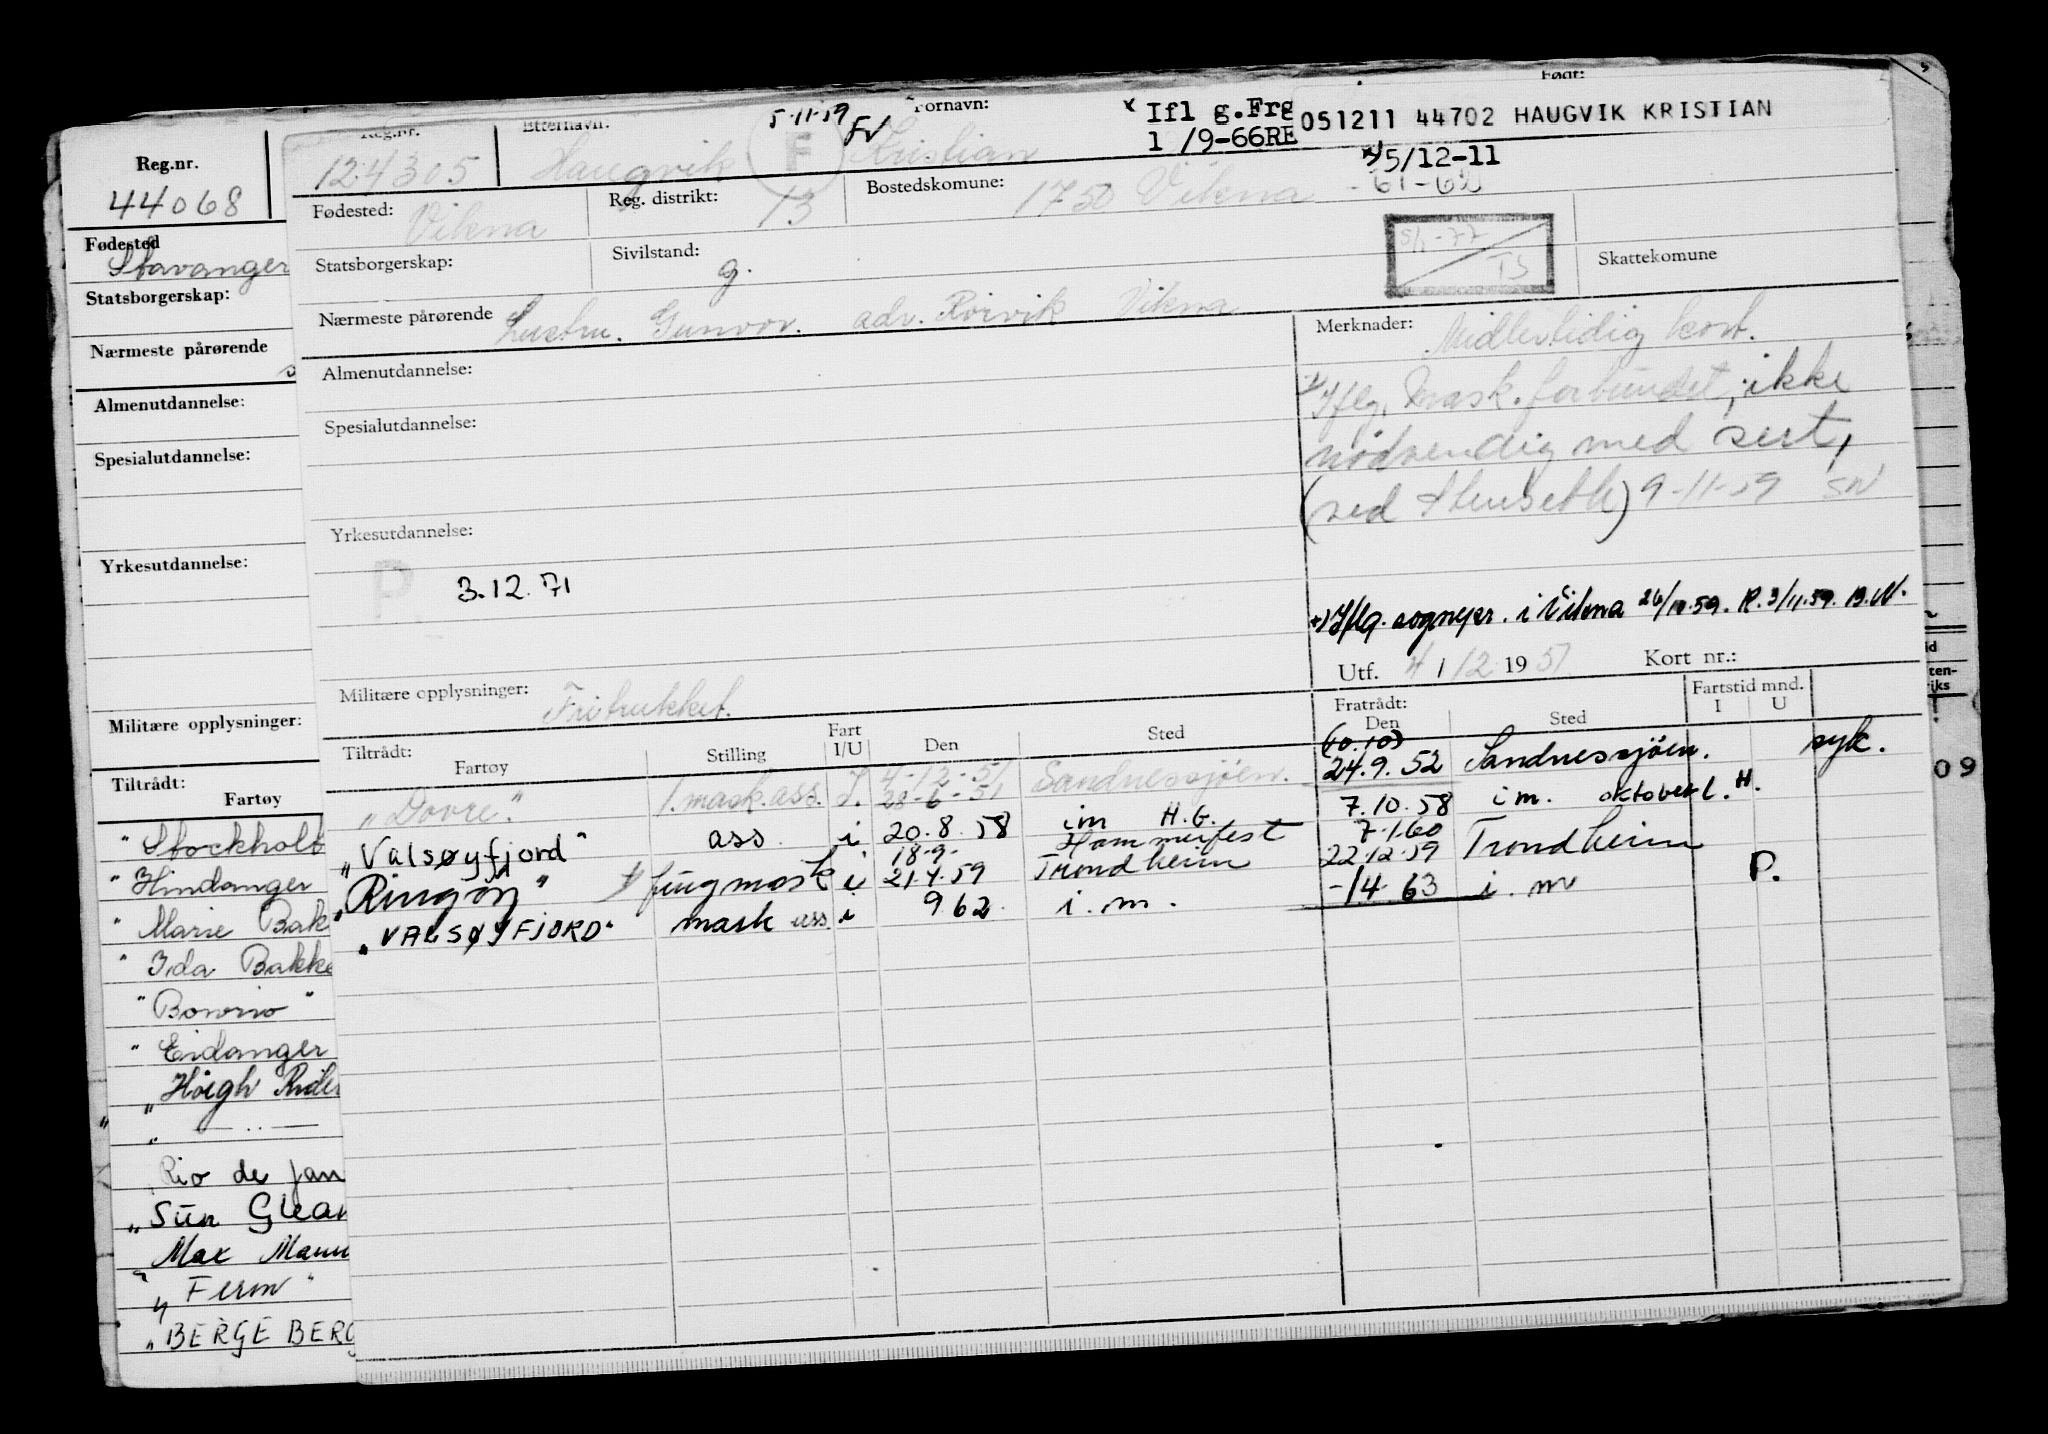 Født:
Reg.nr.
Etternavn:
5-11-59
FV
Fornavn:
Ifl g.Frg
1 /9-66RE
051211 44702 HAUGVIK KRISTIAN
124305
Haugvik
F
Kristian
x) 5/12-11
- 61 - 62
Fødested:
Vikna
Reg. distrikt:
13
Bostedskomune:
1750 Vikna
Statsborgerskap:
Sivilstand:
g.
5/1-77
TS
Skattekomune
Nærmeste pårørende
Hustru. Gunvor. adr. Rørvik Vikna
Merknader:
Midlertidig kort.
Almenutdannelse:
Iflg. Mask.forbundet, ikke
Spesialutdannelse:
nødvendig med sert,
(ved 9-11-59 SN
Yrkesutdannelse:
P
3.12.71
+) Iflg. sogneper. i Vikna 26/10.59. R. 3/11.59. B.N.
Utf. 4 / 12 1951
Kort nr.:
Militære opplysninger:
Fritrukket.
Tiltrådt:
Fartøy
Stilling
Fart
I/U
Den
Sted
Fratrådt:
Den
Sted
Fartstid mnd.
I
U
"Dovre."
1. mask.ass.
I.
4-12-51
28-6-51
Sandnessjøen.
(10.10)
24.9.52
Sandnessjøen.
syk.
"Valsøyfjord"
ass
i
20.8.58
im H.G.
7.10.58
im. oktober L.H.
"Ringøy"
fung mask
i
18-9-
21.4.59
Hammerfest
Trondheim
7.1.60
22.12.59
Trondheim
"VALSØYFJORD"
mask ass
i
9 62
i.m.
-/4-63
i.m
P.
Reg.nr.
44068
Fødested
Stavanger
Statsborgerskap:
Nærmeste pårørende
Almenutdannelse:
Spesialutdannelse:
Yrkesutdannelse:
Militære opplysninger:
Tiltrådt:
Fartøy
"Stockhol
"Hindanger
"Marie Bak
"Ida Bakke
"Bowrio"
"Eidanger
"Höegh Rider
" — " —
Rio de Jan
"Sun Glean
Max Mann
"Fernv"
"BERGE BERG
ten-
iks
09